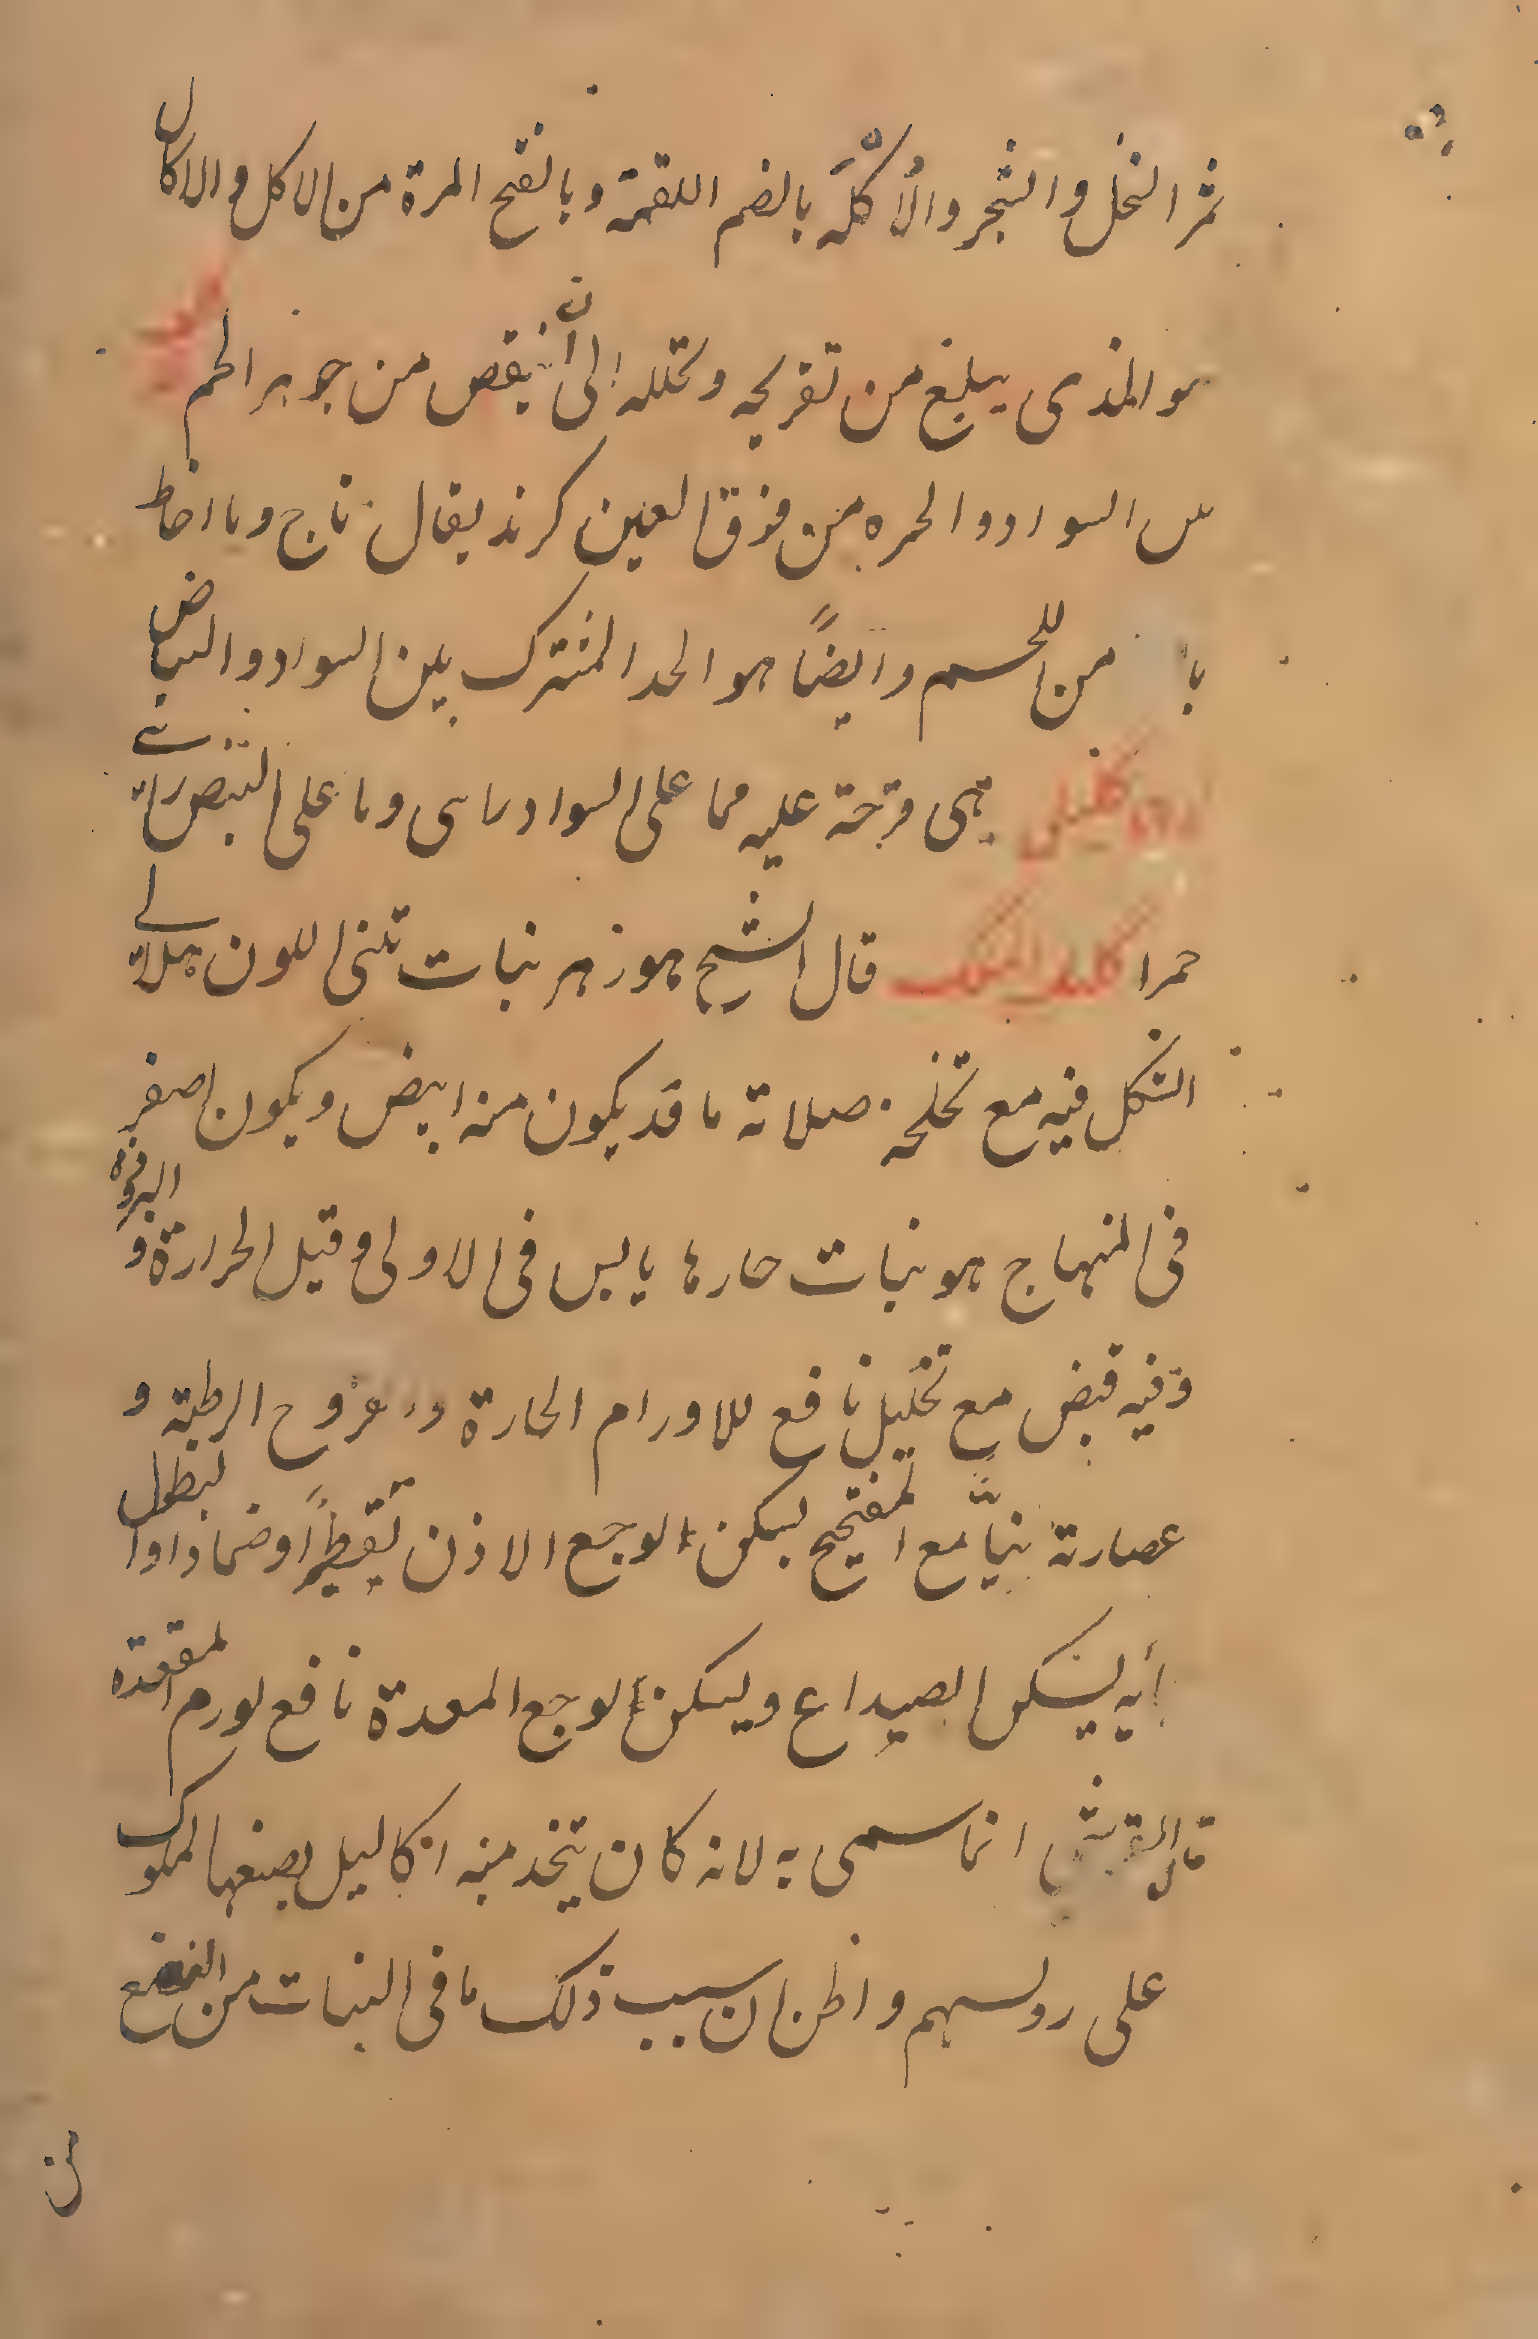 ثمر النخل والشجر والأكلة بالضم اللقمة وبالفتح المرة من الاكل والاكال
هو الذى يبلغ من تقريحه وتحلله الى أن ينقص من جوهر اللحم
السواد والحمره من فوق العين كرند يقال تاج وما احاط
من اللحم وايضًا هو الحد المشترك بين السواد والبياض
اكليلى هى قرحة عليه مما على السواد وما على
حمرا قال الشيخ هو زهر نبات تبنى اللون هلالى
الشكل فيه مع تخلخه صلابة ما قد يكون منه ابيض ويكون اصفر
فى المنهاج هو نبات حارها يابس فى الاولى وقيل الحرارة و البرودة
وفيه قبض مع تحليل نافع للاورام الحارة و الرطبة و
عصارته مع يسكن الوجع الاذن تقطيرًا وضمادا
يسكن الصداع ويسكن الوجع المعدة نافع لورم المقعدة
قال القرشى انما سمى به لانه كان يتخذ منه اكاليل يصنعها الملوك
على روسهم واظن ان سبب ذلك ما فى النبات من
من